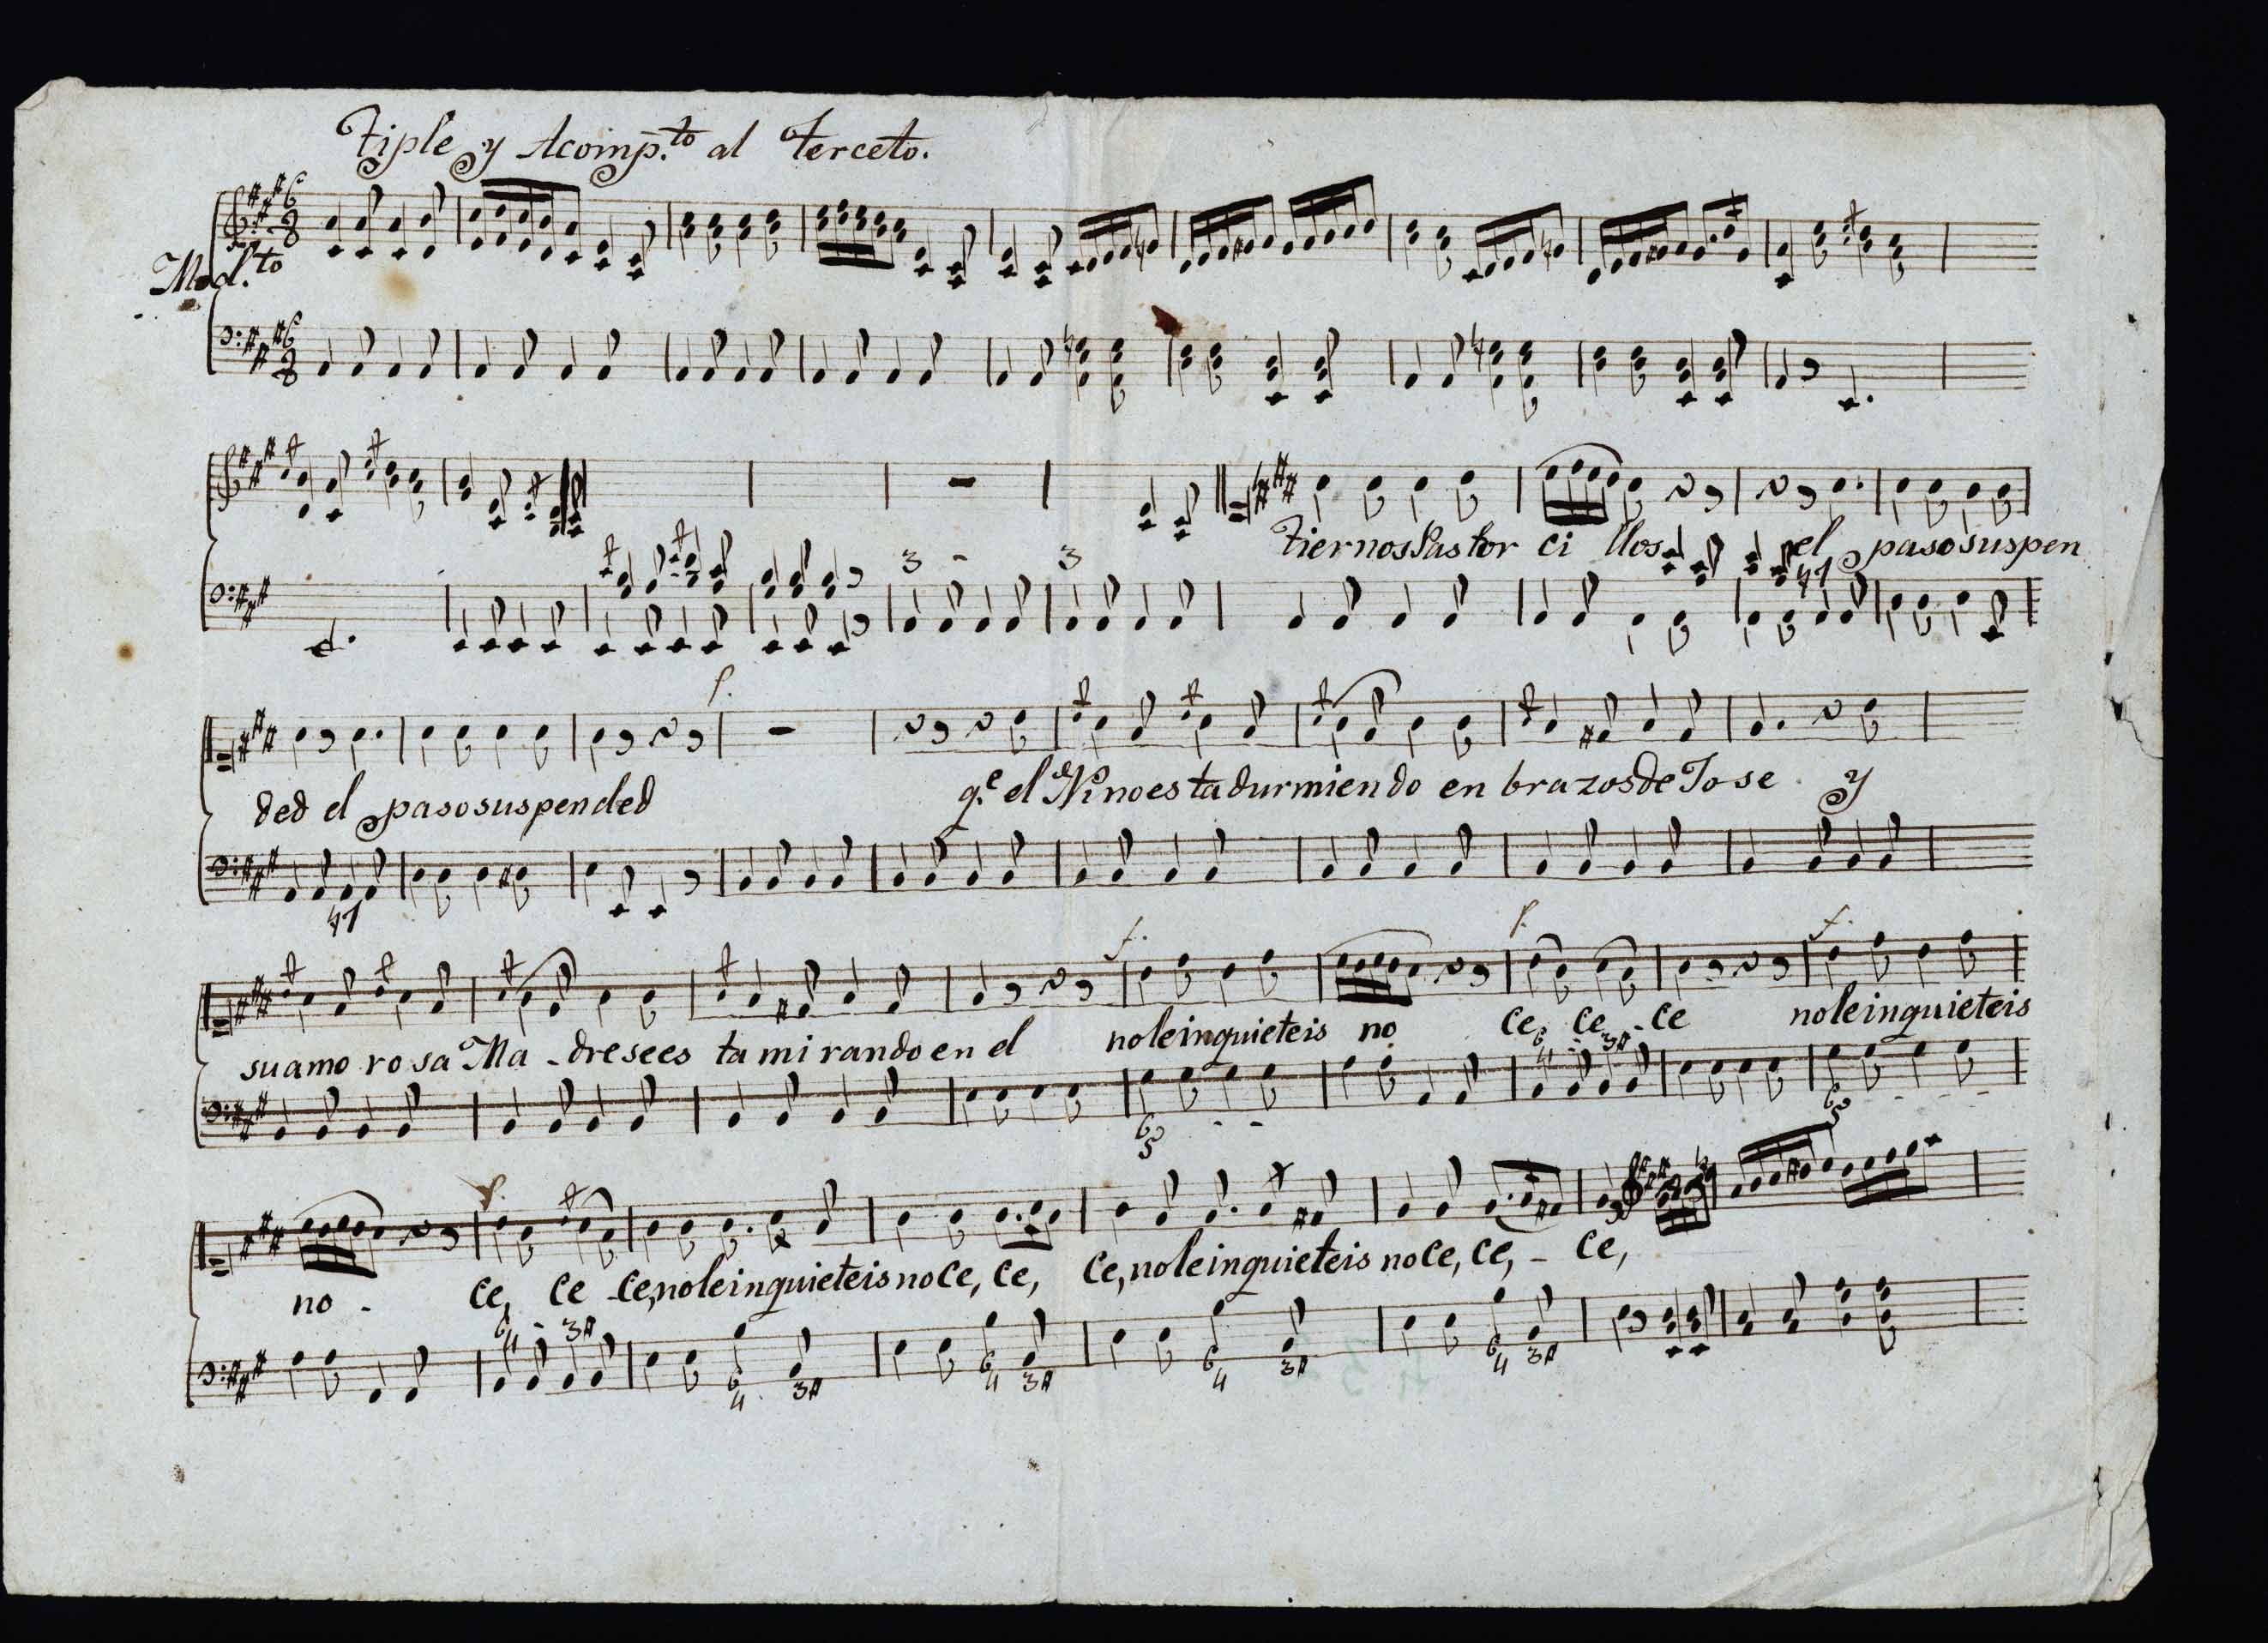 Tiple y Acomp.to al Terceto.
Mod.to
6
8
6
8
3 - 3
Tiernos Pastor ci llos el paso suspen
47
f.
ded el paso suspended
q.e el Niño esta durmiendo en brazos de Jose y
47
f. f. f.
su amo ro sa Ma - dre se es ta mi rando en el no le inquieteis no ce, ce - ce no le inquieteis
6 4 - 3#
6 5 - -
6 5 - - -
f.
no - ce, ce - ce, no le inquieteis no ce, ce, ce, no le inquieteis no ce, ce, - ce,
6 4 - 3#
6 4 3# 6 4 3# 6 4 3# 6 4 3#